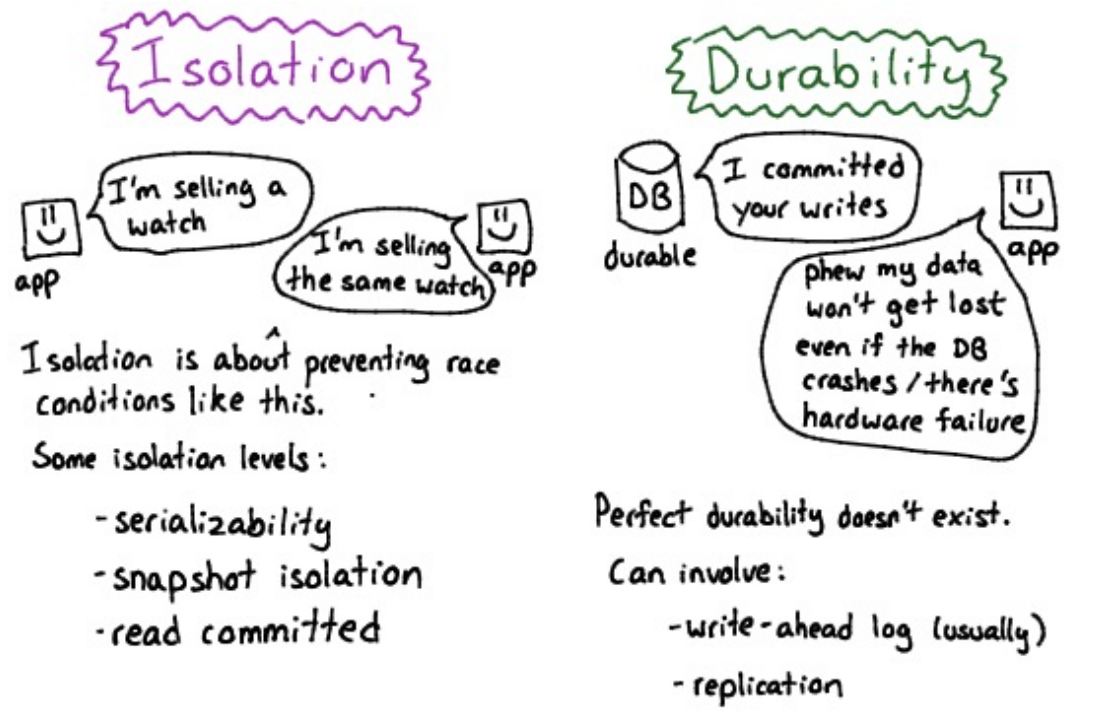 Isolation
I'm selling a
watch
app
I'm selling
the same watch
app
Isolation is about preventing race
conditions like this.
Some isolation levels:
-serializability
-snapshot isolation
-read committed
Durability
DB
durable
I committed
your writes
app
phew my data
won't get lost
even if the DB
crashes/there's
hardware failure
Perfect durability doesn't exist.
Can involve:
-write-ahead log (usually)
-replication